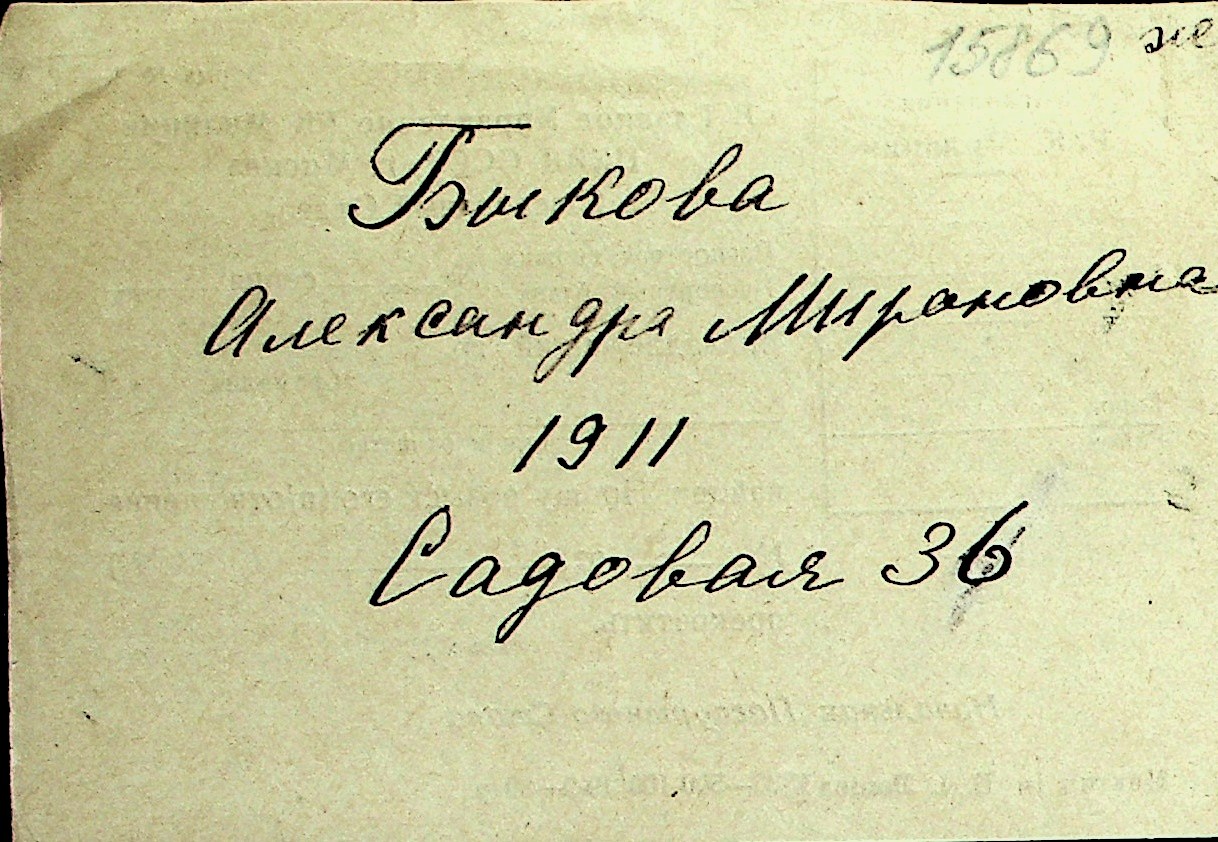 15869 же
Быкова
Александра Мироновна
1911
Садовая 36